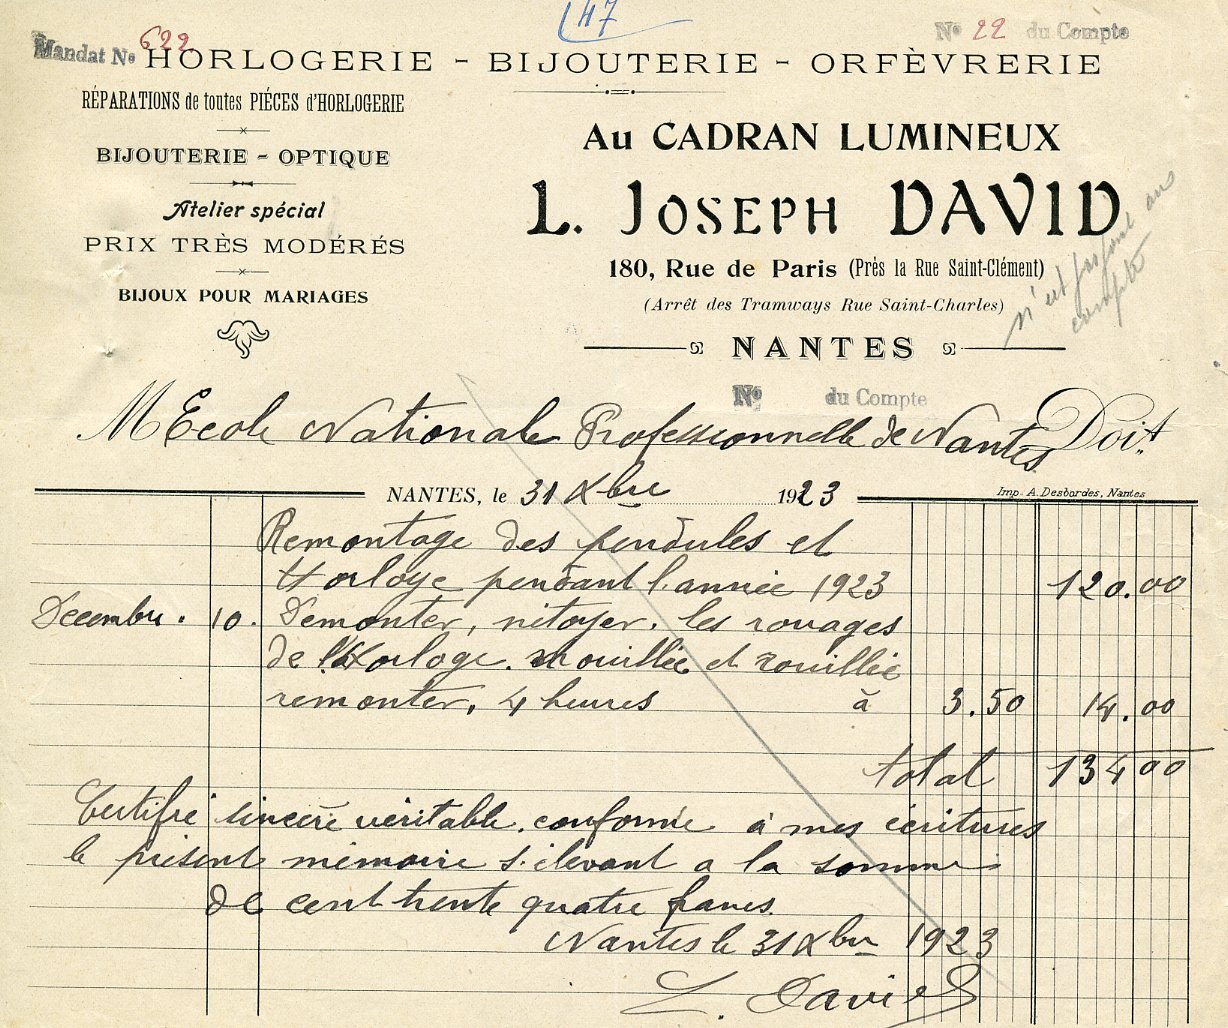 147
Mandat No 622
No 22 du Compte
HORLOGERIE - BIJOUTERIE - ORFÈVRERIE
RÉPARATIONS de toutes PIÉCES d'HORLOGERIE
BIJOUTERIE - OPTIQUE
Atelier spécial
PRIX TRÈS MODÉRÉS
BIJOUX POUR MARIAGES
Au CADRAN LUMINEUX
L. JOSEPH DAVID
180, Rue de Paris (Près la Rue Saint-Clément)
(Arrêt des Tramways Rue Saint-Charles)
NANTES
n'est pas au
compte
No du Compte
M Ecole Nationale Professionnelle de Nantes Doit
NANTES, le 31 Xbre 1923
Imp. A. Desbordes, Nantes
Remontage des pendules et
Horloge pendant l'année 1923 120.00
Decembre. 10. Demonter, nitoyer. les rouages
de l'Horloge. mouillée et rouillée
remonter, 4 heures à 3.50 14.00
total 134 00
Certifié sincère véritable. conforme à mes écritures
le présent mémoire s'élevant a la somme
de cent trente quatre francs.
Nantes le 31 Xbre 1923
L. David